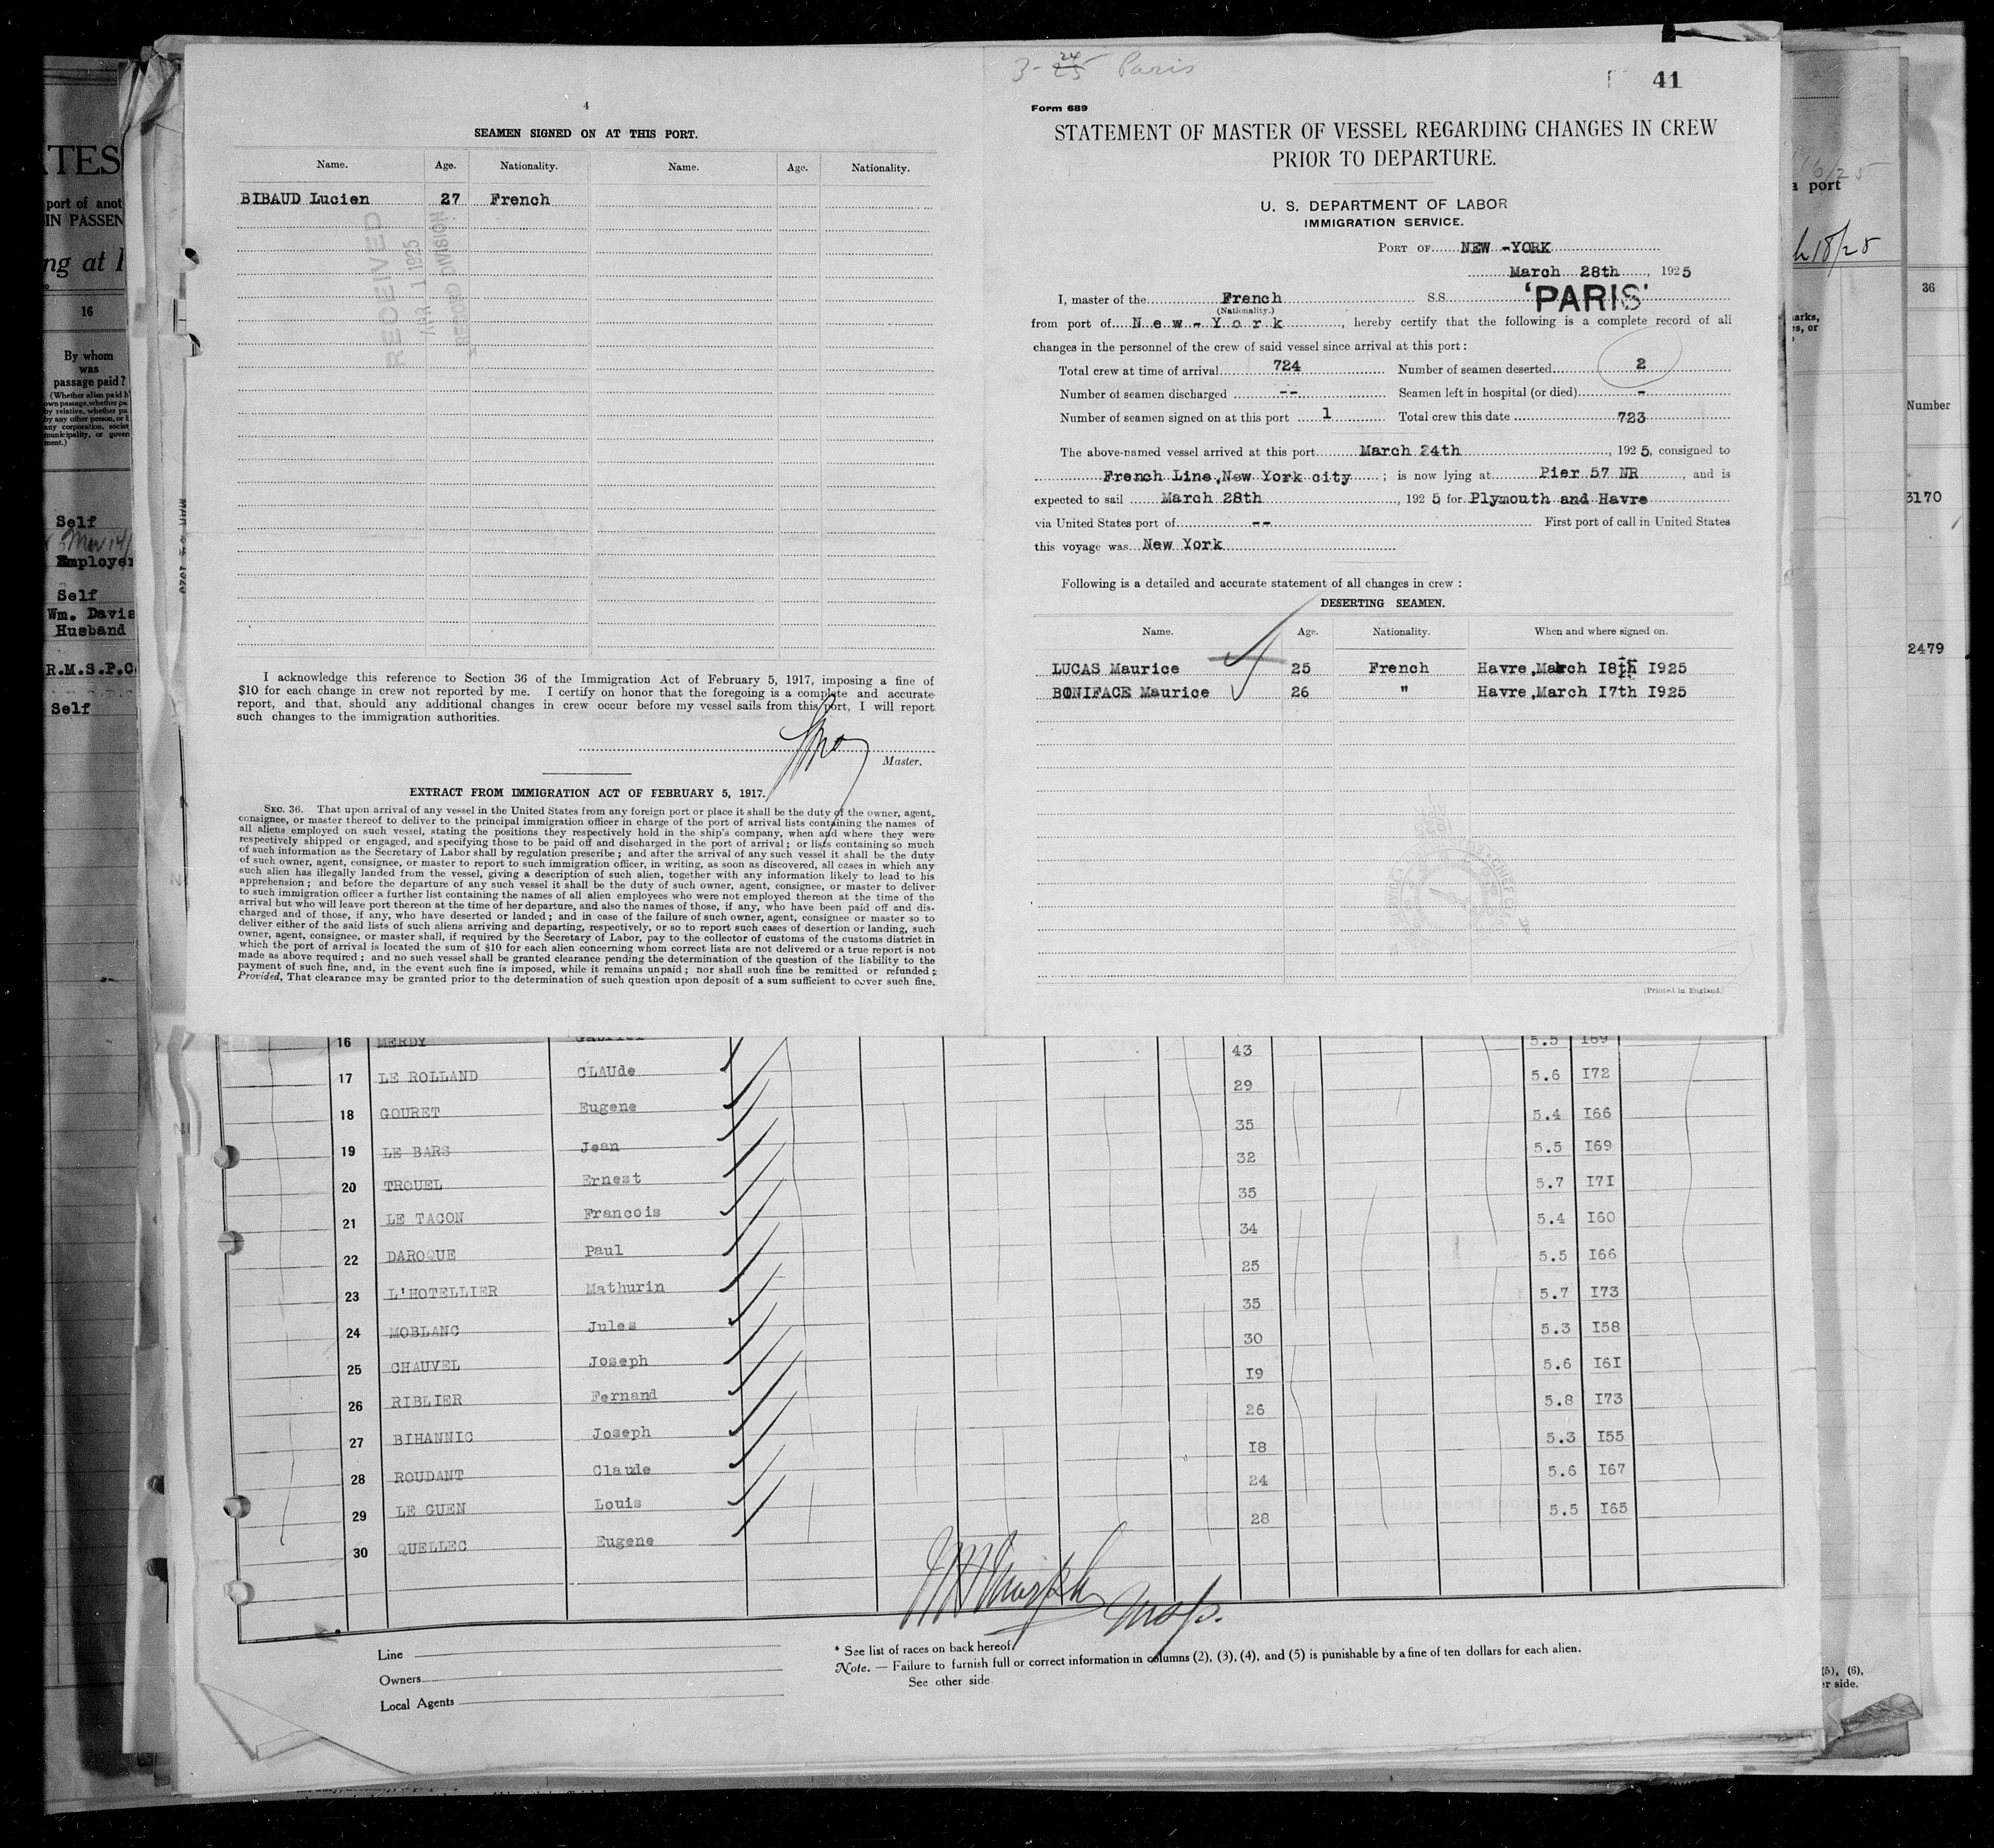 4
SEAMEN SIGNED ON AT THIS PORT.
Name. Age. Nationality. Name. Age. Nationality.
BIBAUD Lucien 27 French
RECEIVED
1925
RECORD DIVISION
I acknowledge this reference to Section 36 of the Immigration Act of February 5, 1917, imposing a fine of
$10 for each change in crew not reported by me. I certify on honor that the foregoing is a complete and accurate
report, and that, should any additional changes in crew occur before my vessel sails from this port, I will report
such changes to the immigration authorities.
Master.
EXTRACT FROM IMMIGRATION ACT OF FEBRUARY 5, 1917.
SEC. 36. That upon arrival of any vessel in the United States from any foreign port or place it shall be the duty of the owner, agent,
consignee, or master thereof to deliver to the principal immigration officer in charge of the port of arrival lists containing the names of
all aliens employed on such vessel, stating the positions they respectively hold in the ship's company, when and where they were
respectively shipped or engaged, and specifying those to be paid off and discharged in the port of arrival; or lists containing so much
of such information as the Secretary of Labor shall by regulation prescribe; and after the arrival of any such vessel it shall be the duty
of such owner, agent, consignee, or master to report to such immigration officer, in writing, as soon as discovered, all cases in which any
such alien has illegally landed from the vessel, giving a description of such alien, together with any information likely to lead to his
apprehension; and before the departure of any such vessel it shall be the duty of such owner, agent, consignee, or master to deliver
to such immigration officer a further list containing the names of all alien employees who were not employed thereon at the time of the
arrival but who will leave port thereon at the time of her departure, and also the names of those, if any, who have been paid off and dis-
charged and of those, if any, who have deserted or landed; and in case of the failure of such owner, agent, consignee or master so to
deliver either of the said lists of such aliens arriving and departing, respectively, or so to report such cases of desertion or landing, such
owner, agent, consignee, or master shall, if required by the Secretary of Labor, pay to the collector of customs of the customs district in
which the port of arrival is located the sum of $10 for each alien concerning whom correct lists are not delivered or a true report is not
made as above required; and no such vessel shall be granted clearance pending the determination of the question of the liability to the
payment of such fine, and, in the event such fine is imposed, while it remains unpaid; nor shall such fine be remitted or refunded:
Provided, That clearance may be granted prior to the determination of such question upon deposit of a sum sufficient to cover such fine.
3-24 25 Paris
41
Form 689
STATEMENT OF MASTER OF VESSEL REGARDING CHANGES IN CREW
PRIOR TO DEPARTURE.
U. S. DEPARTMENT OF LABOR
IMMIGRATION SERVICE.
PORT OF NEW-YORK
March 28th, 1925
I, master of the French S.S. 'PARIS'
(Nationality.)
from port of New-York, hereby certify that the following is a complete record of all
changes in the personnel of the crew of said vessel since arrival at this port:
Total crew at time of arrival 724 Number of seamen deserted 2
Number of seamen discharged -- Seamen left in hospital (or died) -
Number of seamen signed on at this port 1 Total crew this date 723
The above-named vessel arrived at this port March 24th, 1925, consigned to
French Line, New York city; is now lying at Pier 57 NR, and is
expected to sail March 28th, 1925 for Plymouth and Havre
via United States port of -- First port of call in United States
this voyage was New York
Following is a detailed and accurate statement of all changes in crew:
DESERTING SEAMEN.
Name. Age. Nationality. When and where signed on.
LUCAS Maurice 25 French Havre, March I8th I925
BONIFACE Maurice 26 " Havre, March I7th I925
(Printed in England.)
16 MERDY Gabriel 43 5.5 I69
17 LE ROLLAND CLAUde 29 5.6 I72
18 GOURET Eugene 35 5.4 I66
19 LE BARS Jean 32 5.5 I69
20 TROUEL Ernest 35 5.7 I7I
21 LE TACON Francois 34 5.4 I60
22 DAROQUE Paul 25 5.5 I66
23 L'HOTELLIER Mathurin 35 5.7 I73
24 MOBLANC Jules 30 5.3 I58
25 CHAUVEL Joseph I9 5.6 I6I
26 RIBLIER Fernand 26 5.8 I73
27 BIHANNIC Joseph I8 5.3 I55
28 ROUDANT Claude 24 5.6 I67
29 LE GUEN Louis 28 5.5 I65
30 QUELLEC Eugene
Line
Owners
Local Agents
* See list of races on back hereof.
Note. — Failure to furnish full or correct information in columns (2), (3), (4), and (5) is punishable by a fine of ten dollars for each alien.
See other side.
TES
port of anot
IN PASSEN
ng at
16
By whom
was
passage paid?
(Whether alien paid h
own passage, whether pa
by relative, whether pa
by any other person, or
any corporation, societ
municipality, or gover
ment.)
Self
Employer
Self
Wm. Davis
Husband
R.M.S.P.C
Self
a port
h 18/25
36
arks,
es, or
Number
3170
2479
(5), (6),
er side.